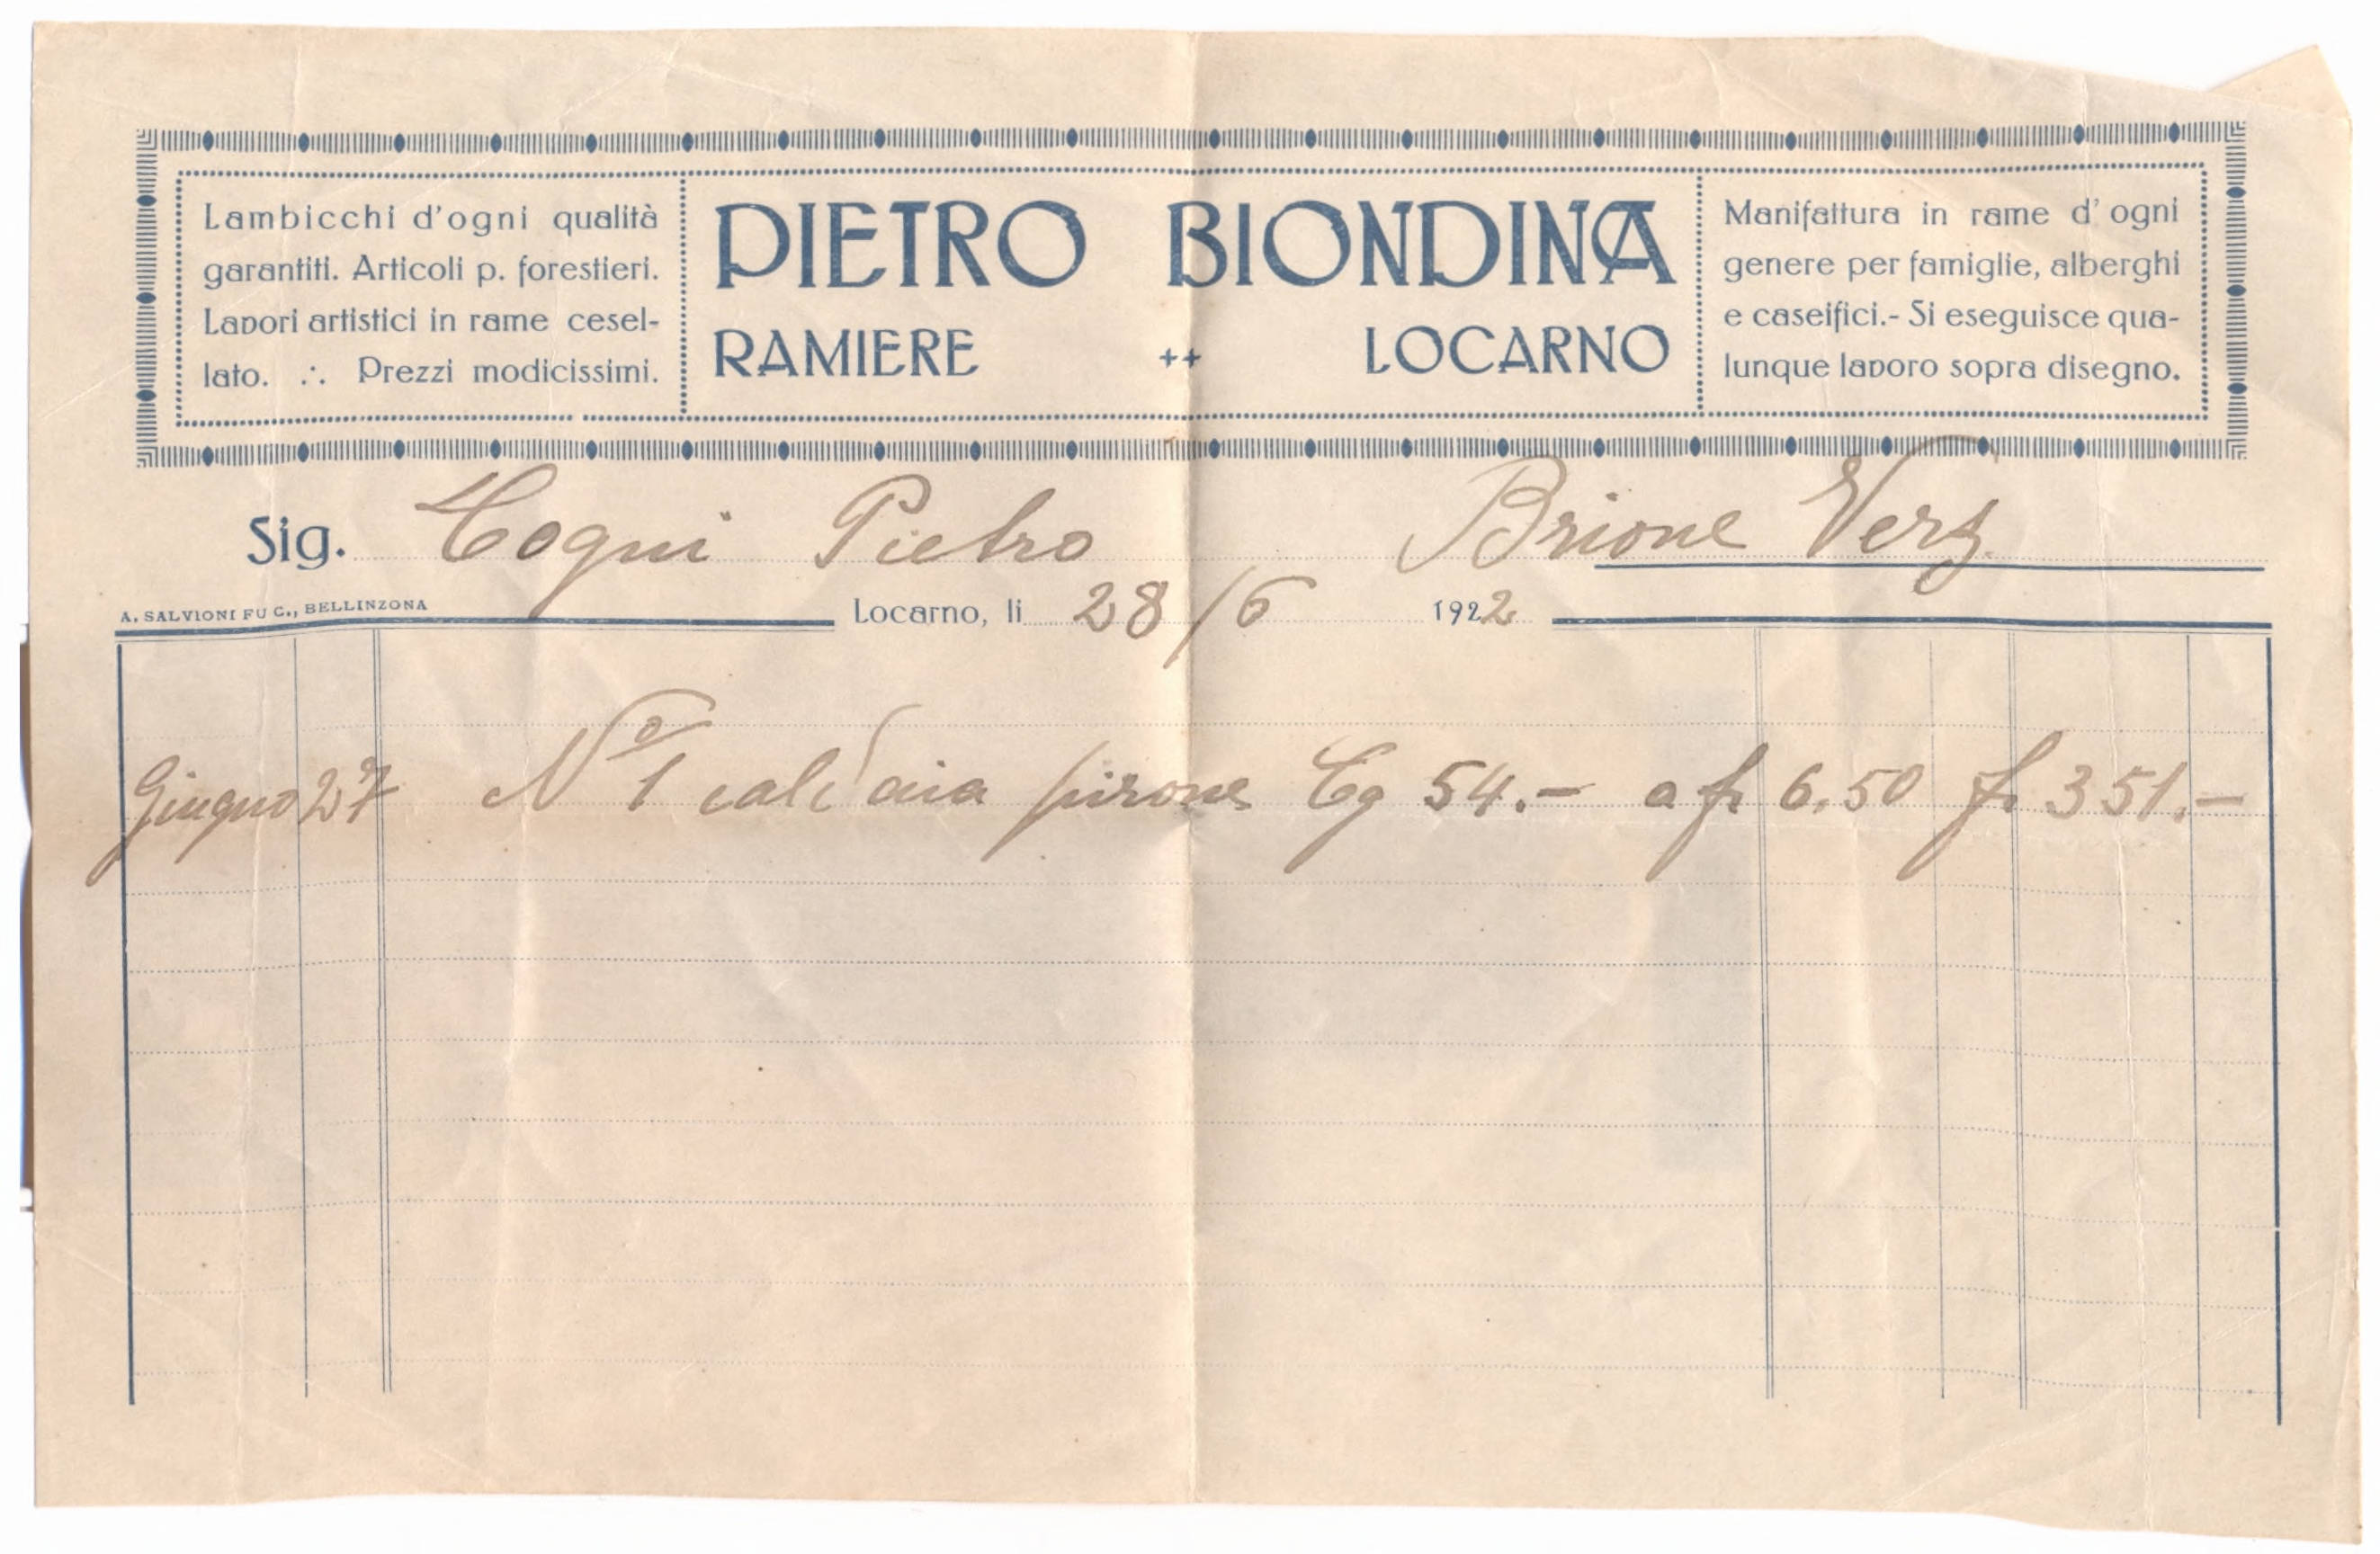 Lambicchi d'ogni qualità
garantiti. Articoli p. forestieri.
Lavori artistici in rame cesel-
lato. ∴ Prezzi modicissimi.
PIETRO BIONDINA
RAMIERE ++ LOCARNO
Manifattura in rame d' ogni
genere per famiglie, alberghi
e caseifici.- Si eseguisce qua-
lunque lavoro sopra disegno.
Sig. Togni Pietro Brione Verz.
A. SALVIONI FU C., BELLINZONA
Locarno, li 28/6 1922
Giugno 27 No 1 caldaia Cg 54.- a fr 6.50 fr 351.-